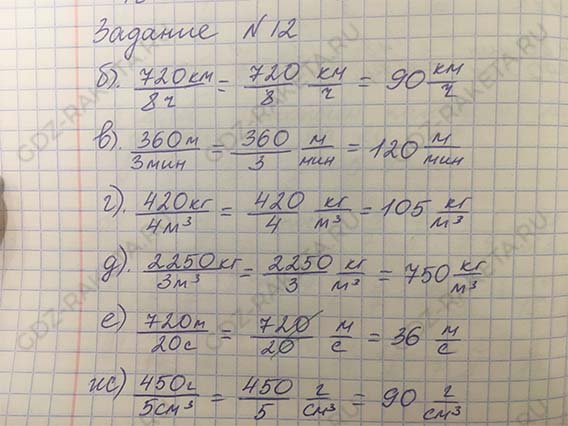 Задание №12
б). 720км/8ч = 720/8 км/ч = 90 км/ч
в). 360м/3мин = 360/3 м/мин = 120 м/мин
г). 420кг/4м³ = 420/4 кг/м³ = 105 кг/м³
д). 2250кг/3м³ = 2250/3 кг/м³ = 750 кг/м³
е) 720м/20с = 720/20 м/с = 36 м/с
ж) 450г/5см³ = 450/5 г/см³ = 90 г/см³
GDZ-RAKETA.RU
GDZ-RAKETA.RU
GDZ-RAKETA.RU
GDZ-RAKETA.RU